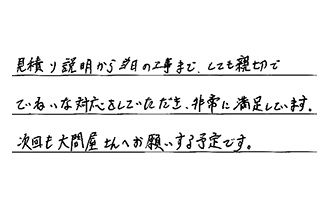 見積り説明から当日の工事まで、とても親切で
ていねいな対応をしていただき、非常に満足しています。
次回も大問屋さんへお願いする予定です。